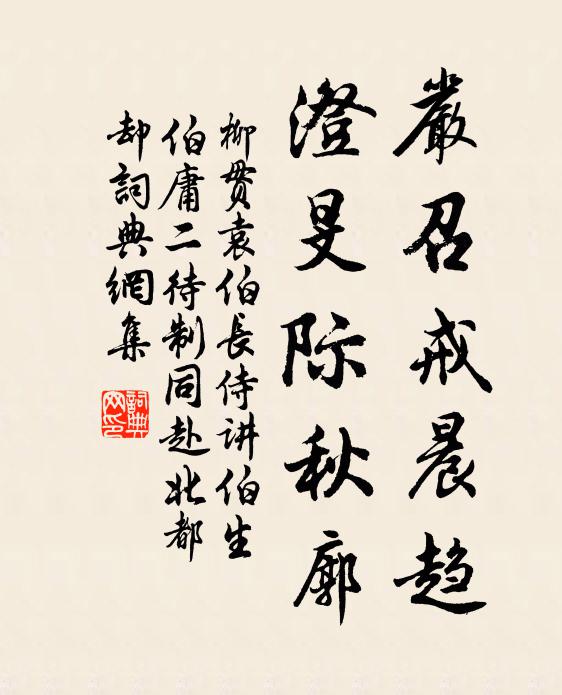 嚴召戒晨趨
澄旻际秋廓
柳貫袁伯長侍讲伯生
伯庸二待制同赴北都
却詞典網集
詞典
网印